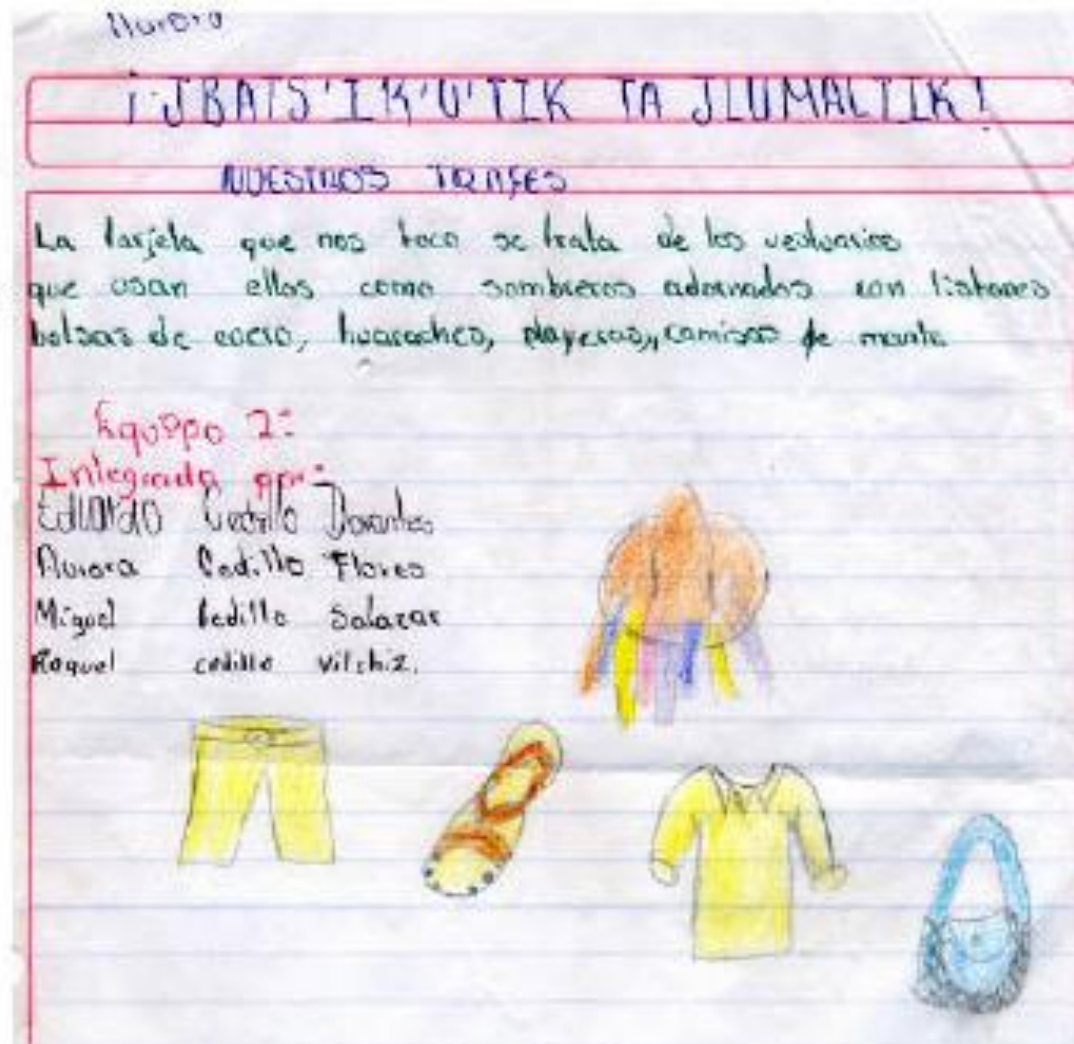 Aurora
¡JBATS'IK'U'TIK TA JLUMALTIK!
NUESTROS TRAJES
La tarjeta que nos toco se trata de los vestuarios
que usan ellos como sombreros adornados con listones
bolsas de cuero, huaraches, playeras, camisas de manta
Equipo 2:
Integrada por:
Eduardo Cedillo Dorantes
Aurora Cedillo Flores
Miguel Cedillo Salazar
Raquel cedillo Vilchiz.